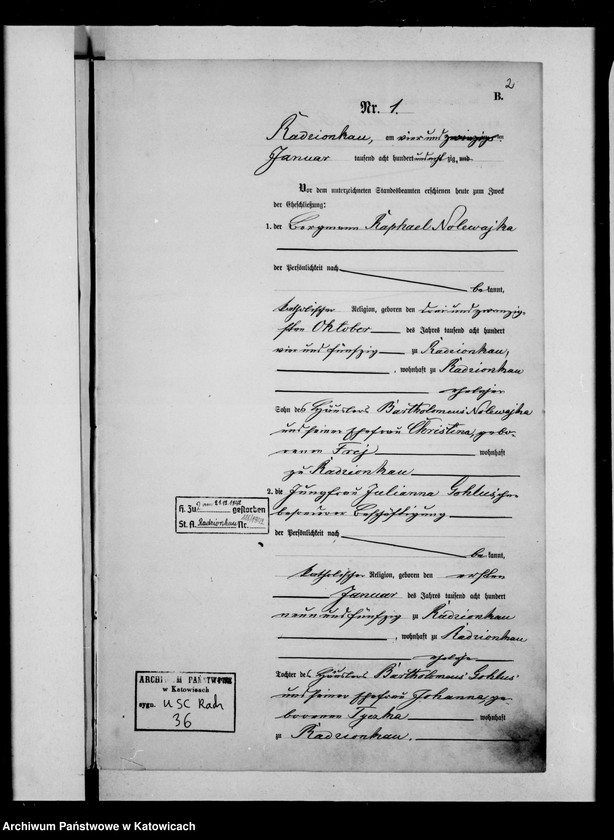 2
B.
Nr. 1.
Radzionkau, am vier und zwanzigsten
Januar tausend acht hundert und acht zig, und
Vor dem unterzeichneten Standesbeamten erschienen heute zum Zweck
der Eheschließung:
1. der Bergmann Raphael Nolewajka
der Persönlichkeit nach
be kannt,
katholischer Religion, geboren den drei und zwanzig-
sten Oktober des Jahres tausend acht hundert
vier und fünfzig zu Radzionkau,
, wohnhaft zu Radzionkau
ehelicher
Sohn des Häuslers Bartholomeus Nolewajka
und seiner Ehefrau Christina, gebo-
renen Frej wohnhaft
zu Radzionkau
2. die Jungfrau Julianna Gohlus, ohne
besondere Beschäftigung
der Persönlichkeit nach
be kannt,
katholischer Religion, geboren den ersten
Januar des Jahres tausend acht hundert
neun und fünfzig zu Radzionkau
, wohnhaft zu Radzionkau
eheliche
Tochter des Häuslers Bartholomeus Gohlus
und seiner Ehefrau Johanna, ge-
borenen Tyczka wohnhaft
zu Radzionkau.
gestorben
St. A. Radzionkau Nr.
ARCHIWUM PAŃSTWOWE
w Katowicach
sygn. USC Radz
36
Archiwum Państwowe w Katowicach